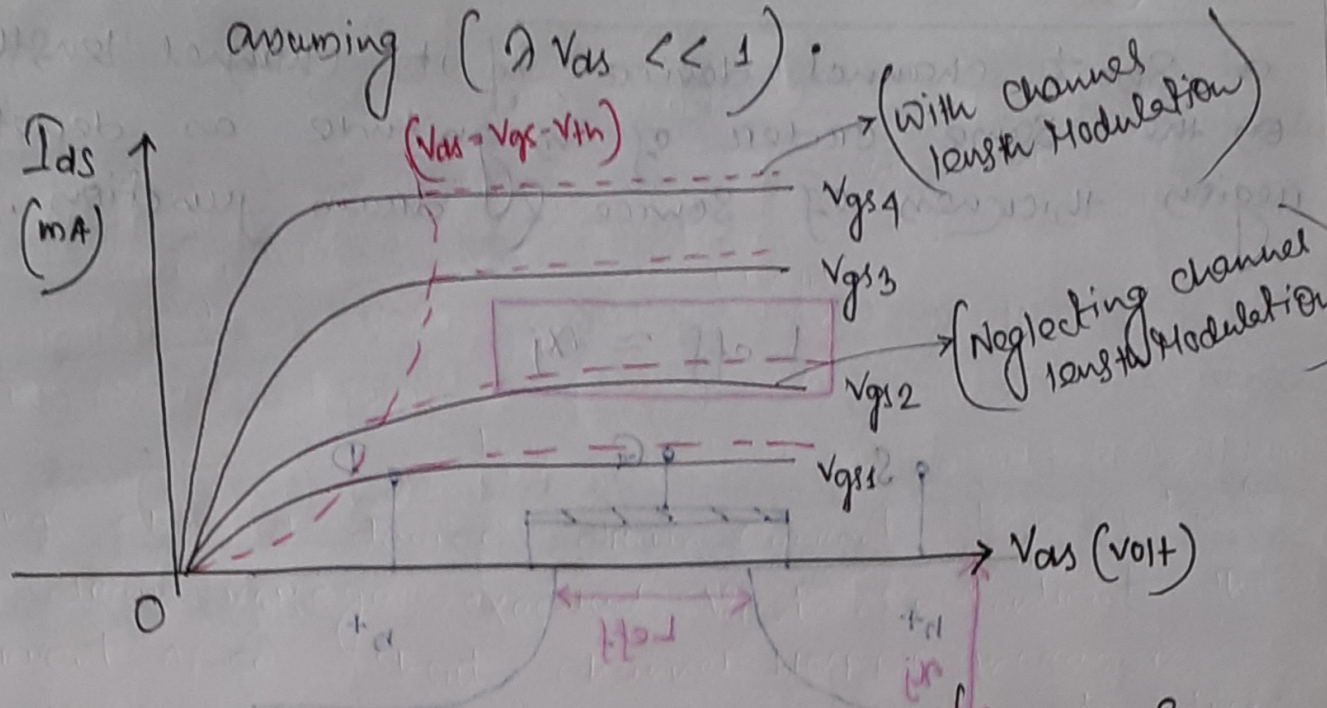 assuming (λ Vds << 1) :
Ids
(mA)
(Vds = Vgs - Vth)
(With channel
length Modulation)
Vgs4
Vgs3
(Neglecting channel
length Modulation
Vgs2
Vgs1
Vds (volt)
0